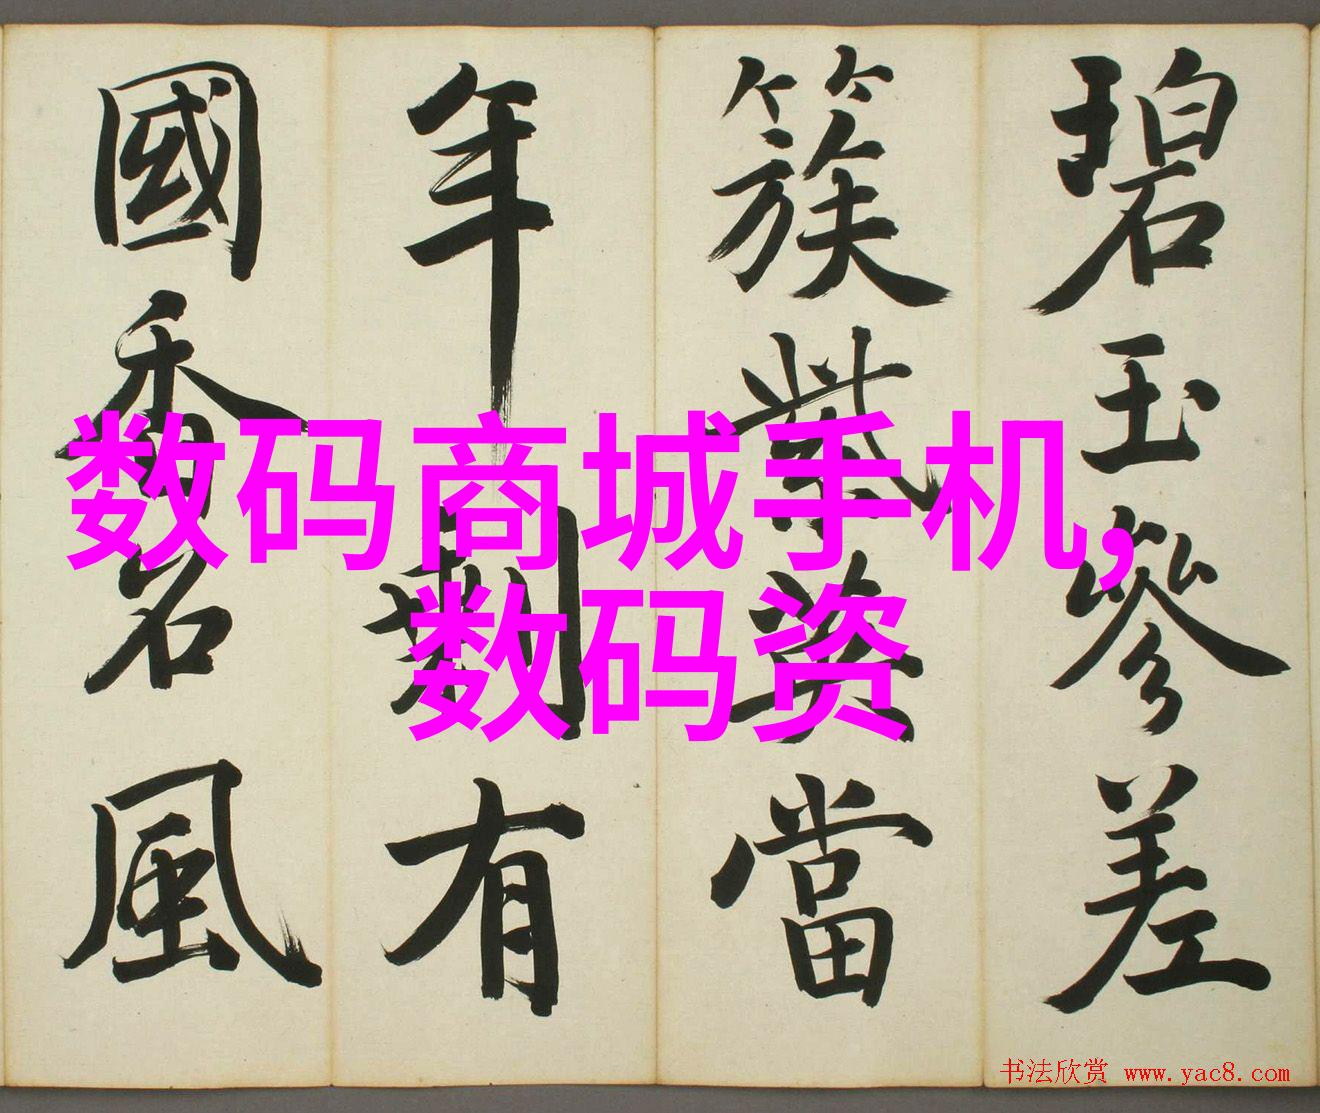 碧玉參差
簇紫英當
年剩有
國香名風
数码商城手机,
数码资
书法欣赏 www.yac8.com